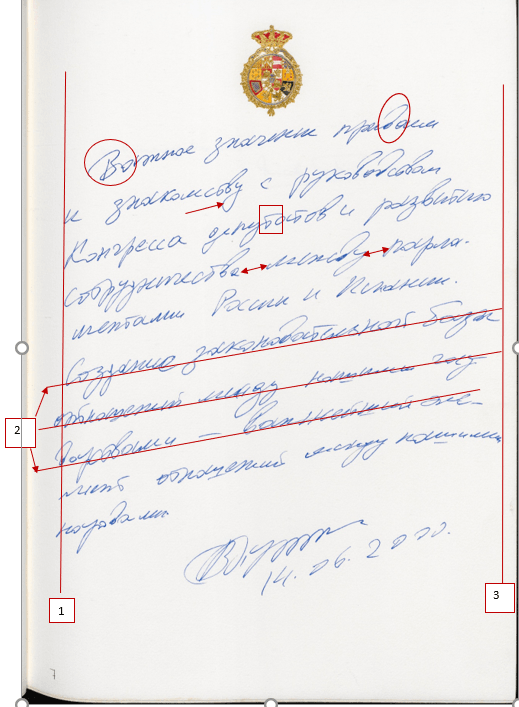 Важное значение придаем
и знакомству с руководством
Конгресса депутатов и развитию
сотрудничества между парла-
ментами России и Испании.
Создание законодательной базы
отношений между нашими госу-
2
дарствами — важнейший эле-
мент отношений между нашими
народами
14.06.2000.
1
3
7